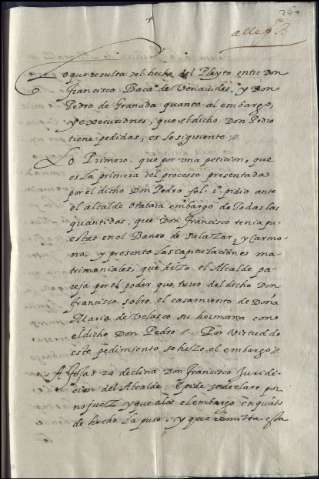 Lo que resulta del hecho del Pleyto entre Don
Francisco Baca de Benauides, y Don
Pedro de Granada quanto al embargo,
y execuciones, que el dicho Don Pedro
tiene pedidas, es lo siguiente
Lo Primero que por una peticion, que
es la primera del proceso presentada
por el dicho Don Pedro fol. 1. pidio ante
el alcalde embargo de todas las
quantidas, que Don Francisco tenia pu
estas en el Banco de Salazar, y Carmo
na, y presento las capitulaciones ma
trimoniales, que hizo el Alcalde
por el poder que tuvo del dicho Don
Francisco sobre el casamiento de Doña
Maria de Velasco su hermana con
el dicho Don Pedro. Por virtud de
este pedimiento se hizo el embargo
A foxas 24 declina Don Francisco Juridi
cion del Alcalde
no juez, y que alçe el embargo en qual
de hecho la puso, y que remita esta